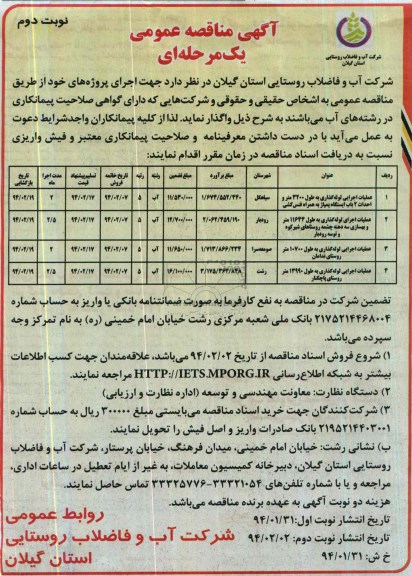 نوبت دوم
آگهی مناقصه عمومی
یک‌مرحله‌ای
شرکت آب و فاضلاب روستایی
استان گیلان
شرکت آب و فاضلاب روستایی استان گیلان در نظر دارد جهت اجرای پروژه‌های خود از طریق
مناقصه عمومی به اشخاص حقیقی و حقوقی و شرکت‌هایی که دارای گواهی صلاحیت پیمانکاری
در رشته‌های آب می‌باشند به شرح ذیل واگذار نماید. لذا از کلیه پیمانکاران واجدشرایط دعوت
به عمل می‌آید با در دست داشتن معرفینامه و صلاحیت پیمانکاری معتبر و فیش واریزی
نسبت به دریافت اسناد مناقصه در زمان مقرر اقدام نمایند:
ردیف عنوان شهرستان مبلغ برآورد مبلغ تضمین رشته رتبه تاریخ خاتمه فروش تسلیم پیشنهاد قیمت مدت اجرا ماه تاریخ بازگشایی
۱ عملیات اجرایی لوله‌گذاری به طول ۳۲۰۰ متر و احداث ۲ باب ایستگاه پمپاژ به همراه فنس‌کشی سیاهکل ۱/۶۷۴/۵۵۲/۳۴۰ ۱۱/۵۴۰/۰۰۰ آب ۵ ۹۴/۰۲/۰۷ ۹۴/۰۲/۱۷ ۲ ۹۴/۰۲/۱۹
۲ عملیات اجرای لوله‌گذاری به طول ۱۱۶۴۴ متر و بهسازی سه دهنه چشمه روستاهای شیرکوه و توسه رودبار رودبار ۲/۰۶۲/۴۵۹/۱۹۰ ۱۲/۷۰۰/۰۰۰ آب ۵ ۹۴/۰۲/۰۷ ۹۴/۰۲/۱۷ ۲/۵ ۹۴/۰۲/۱۹
۳ عملیات اجرایی لوله‌گذاری به طول ۱۰۷۰۰ متر روستای ندامان صومعه‌سرا ۱/۷۱۳/۸۶۶/۲۳۴ ۱۱/۶۵۰/۰۰۰ آب ۵ ۹۴/۰۲/۰۷ ۹۴/۰۲/۱۷ ۲ ۹۴/۰۲/۱۹
۴ عملیات اجرایی لوله‌گذاری به طول ۱۳۹۹۰ متر روستای پاچکنار رشت ۳/۱۷۵/۳۶۴/۸۳۸ ۱۶/۱۰۰/۰۰۰ آب ۵ ۹۴/۰۲/۰۷ ۹۴/۰۲/۱۷ ۲/۵ ۹۴/۰۲/۱۹
تضمین شرکت در مناقصه به نفع کارفرما به صورت ضمانتنامه بانکی یا واریز به حساب شماره
۲۱۷۵۲۱۴۴۶۸۰۰۴ بانک ملی شعبه مرکزی رشت خیابان امام خمینی (ره) به نام تمرکز وجه
سپرده می‌باشد.
۱) شروع فروش اسناد مناقصه از تاریخ ۹۴/۰۲/۰۲ می‌باشد، علاقه‌مندان جهت کسب اطلاعات
بیشتر به شبکه اطلاع‌رسانی HTTP://IETS.MPORG.IR مراجعه نمایند.
۲) دستگاه نظارت: معاونت مهندسی و توسعه (اداره نظارت و ارزیابی)
۳) شرکت‌کنندگان جهت خرید اسناد مناقصه می‌بایستی مبلغ ۳۰۰۰۰۰ ریال به حساب شماره
۲۱۹۵۲۱۴۴۰۳۰۰۱ بانک صادرات واریز و اصل فیش را تحویل نمایند.
ب) نشانی رشت: خیابان امام خمینی، میدان فرهنگ، خیابان پرستار، شرکت آب و فاضلاب
روستایی استان گیلان، دبیرخانه کمیسیون معاملات، به غیر از ایام تعطیل در ساعات اداری،
مراجعه و یا با شماره تلفن‌های ۳۳۳۲۱۰۵۴-۳۳۳۲۵۷۷۶ تماس حاصل نمایند.
هزینه دو نوبت آگهی به عهده برنده مناقصه می‌باشد.
تاریخ انتشار نوبت اول: ۹۴/۰۱/۳۱
تاریخ انتشار نوبت دوم: ۹۴/۰۲/۰۲
خ ش: ۹۴/۰۱/۳۱
روابط عمومی
شرکت آب و فاضلاب روستایی
استان گیلان